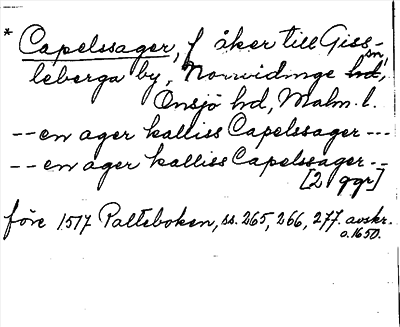 * Capelssager, f åker till Giss-
leberga by, Norrvidinge hd, sn,
Onsjö hd, Malm. l.
-- en ager kalliss Capelssager ---
-- en ager kalliss Capelssager --
[2 ggr]
före 1517 Palteboken, ss. 265, 266, 277. avskr.
o. 1650.